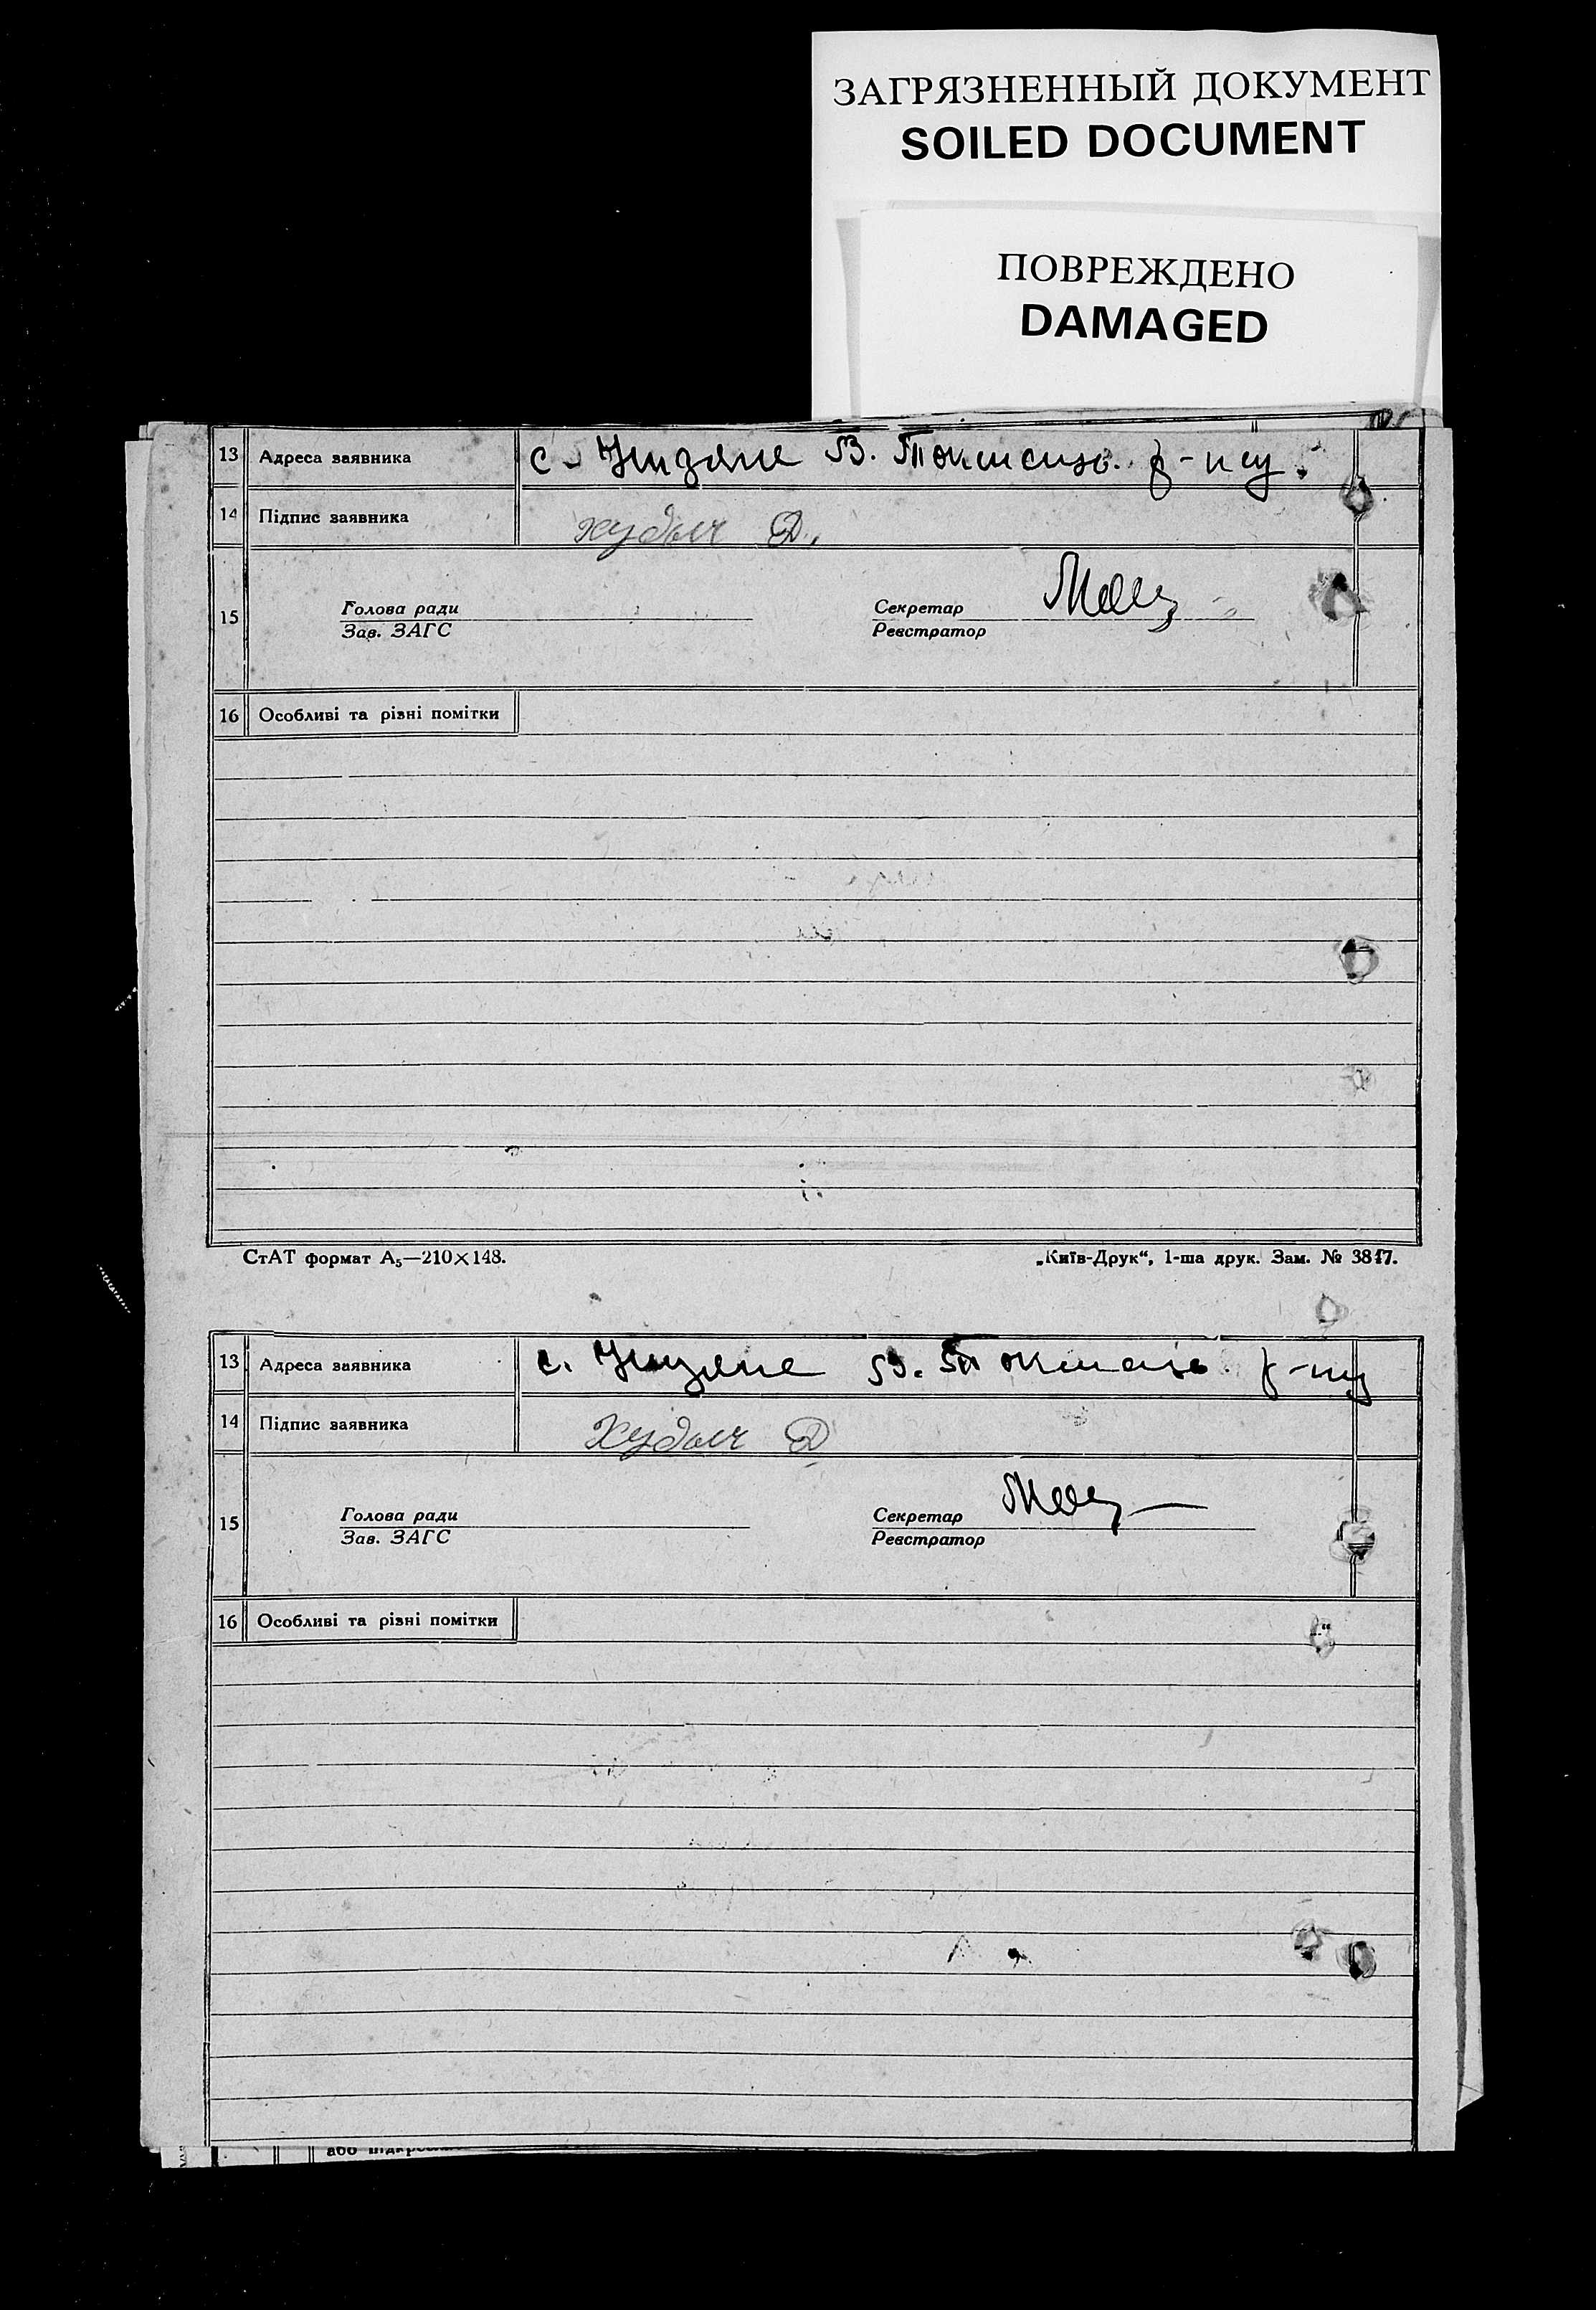 ЗАГРЯЗНЕННЫЙ ДОКУМЕНТ
SOILED DOCUMENT
ПОВРЕЖДЕНО
DAMAGED
13 Адреса заявника с. В. р-ну
14 Підпис заявника Худыч Д.
15 Голова ради Секретар
Зав. ЗАГС Реєстратор
16 Особливі та різні помітки
СтАТ формат А5—210×148. „Київ-Друк“, 1-ша друк. Зам. № 3847.
13 Адреса заявника с. В. р-ну
14 Підпис заявника Худыч Д
15 Голова ради Секретар
Зав. ЗАГС Реєстратор
16 Особливі та різні помітки
або